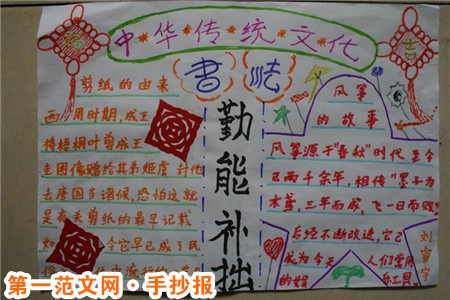 中华传统文化
吉
書法
剪纸的由来
西周时期,成王
将梧桐叶剪成玉
圭图像赠给其弟姬虞 封他
去唐国当诸候,恐怕这就
是有关剪纸的最早记载
如 今它早已成了民
勤能补拙
风筝
的故事
风筝源于"春秋"时代至今
已两千余年,相传"墨子为
木鸢,三年而成,飞一日而败"
后经不断改进,它已
成为今天 人们常用
的娱 乐工具.
第一范文网·手抄报